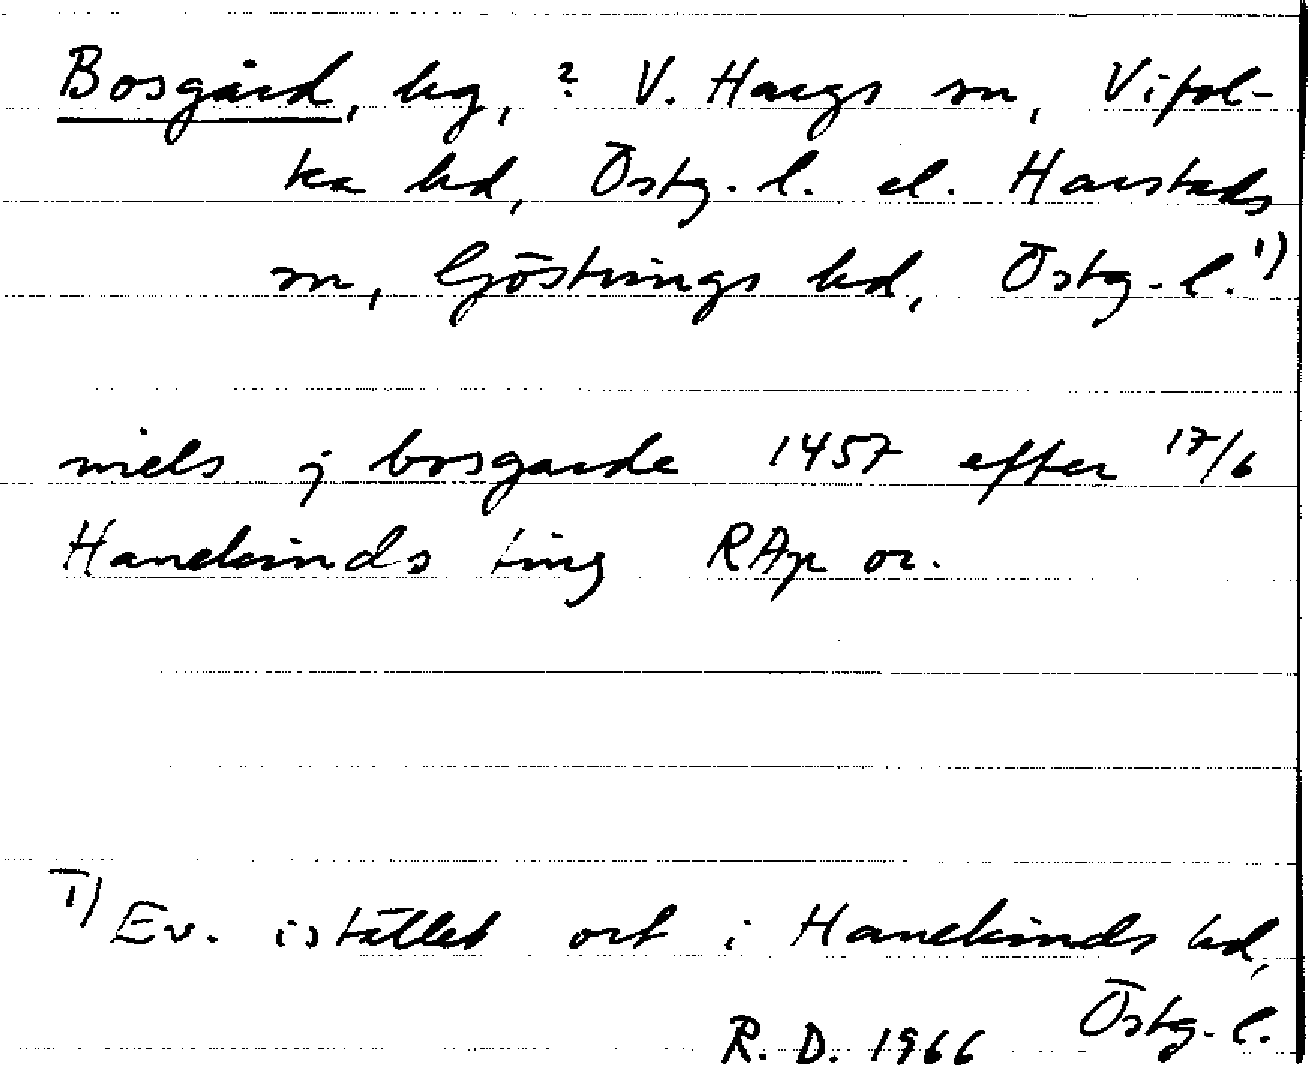 Bosgård, hg, ? V. Hargs sn, Vifol-
ka hd, Östg. l. el. Harstads
sn, Göstrings hd, Östg. l. 1)
niels j bosgarde 1457 efter 17/6
Hanekinds ting RAp or.
1) Ev. istället ort i Hanekinds hd,
Östg. l.
R. D. 1966